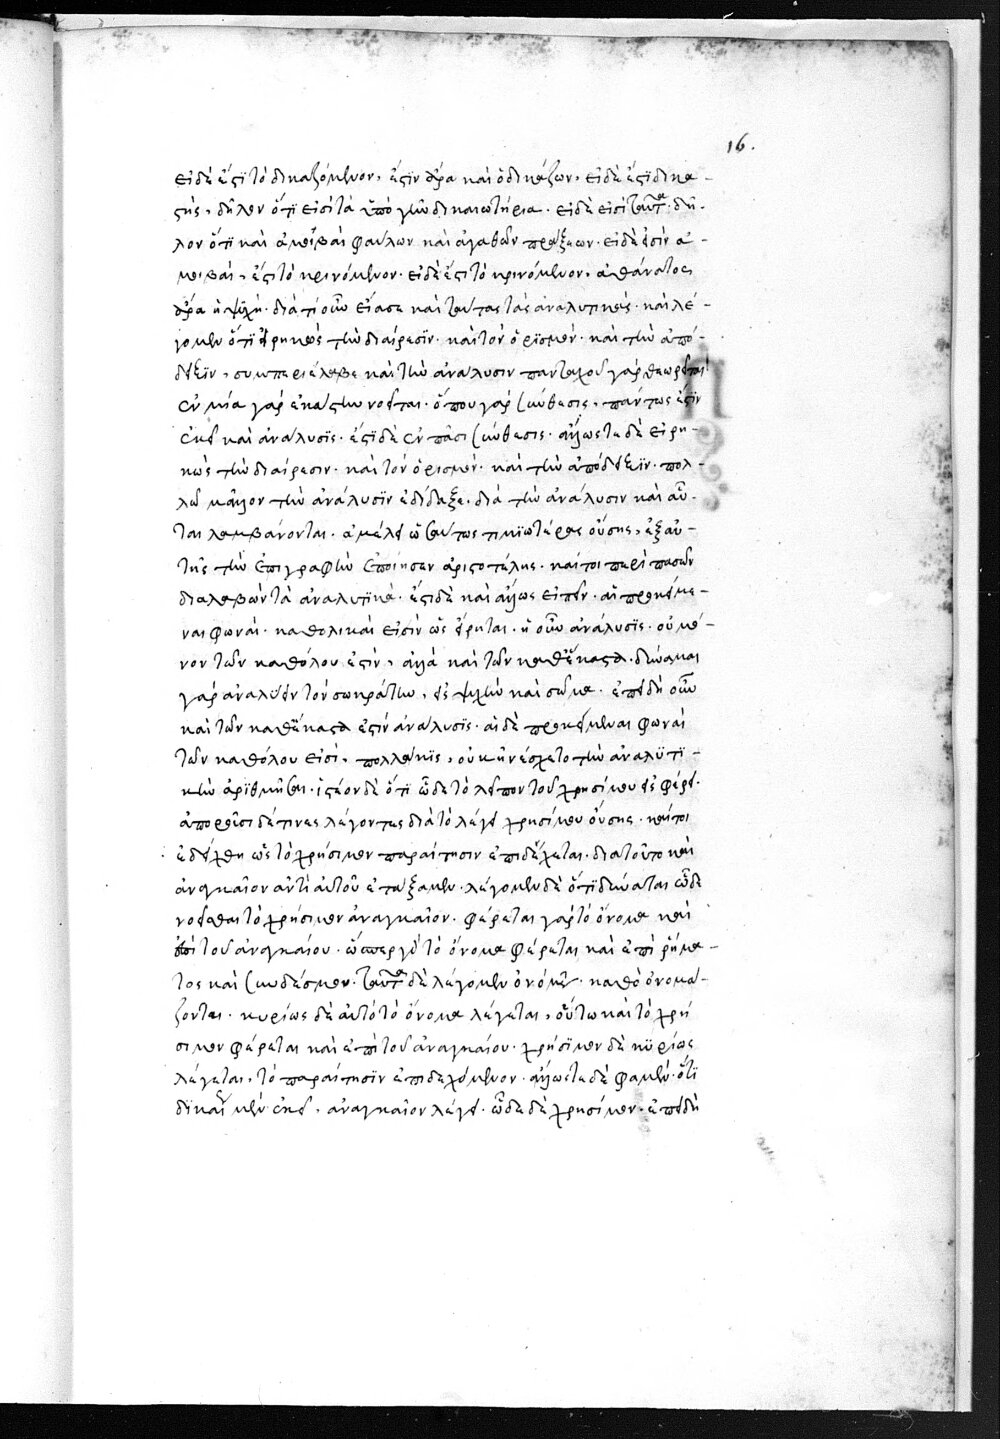 16.
εἰ δὲ ἔστι τὸ δικαζόμενον, ἔστιν ἄρα καὶ ὁ δικάζων, εἰ δὲ ἔστι δικα-
στής, δῆλον ὅτι εἰσὶ τὰ ὑπὸ γῆν δικαιωτήρια· εἰ δὲ εἰσὶ ταῦτα· δῆ-
λον ὅτι καὶ ἀμοιβαὶ φαύλων καὶ ἀγαθῶν πράξεων· εἰ δὲ εἰσὶν ἀ-
μοιβαὶ, ἔστι τὸ κρινόμενον· εἰ δὲ ἔστι τὸ κρινόμενον, ἀθάνατος
ἄρα ἡ ψυχή· διατί οὖν εἴασε καὶ ταύτας τὰς ἀναλυτικάς· καὶ λέ-
γομεν ὅτι εἰρηκὼς τὴν διαίρεσιν· καὶ τὸν ὁρισμόν· καὶ τὴν ἀπό-
δειξιν, συμπεριέλαβε καὶ τὴν ἀνάλυσιν πανταχοῦ γὰρ θεωρεῖται
ἐν μία γὰρ ἑκάστην νοεῖται· ὅπου γὰρ σύνθεσις, πάντως ἐστὶν
ἐκεῖ καὶ ἀνάλυσις· ἔστι δὲ ἐν πᾶσι σύνθεσις· ἄλλως τε δὲ εἰρη-
κὼς τὴν διαίρεσιν· καὶ τὸν ὁρισμόν· καὶ τὴν ἀπόδειξιν· πολ-
λῶ μᾶλλον τὴν ἀνάλυσιν ἐδίδαξε· διὰ τὴν ἀνάλυσιν καὶ αὗ-
ται λαμβάνονται· ἀμέλει ὡς ταύτης τιμιωτέρας οὔσης, ἐξ αὐ-
τῆς τὴν ἐπιγραφὴν ἐποίησεν ἀριστοτέλης· καίτοι περὶ πασῶν
διαλαβὼν τὰ ἀναλυτικά· ἔστι δὲ καὶ ἄλλως εἰπεῖν· αἱ προκείμε-
ναι φωναί· καθολικαὶ εἰσὶν ὡς εἴρηται· ἡ οὖν ἀνάλυσις· οὐ μό-
νον τῶν καθόλου ἐστίν, ἀλλὰ καὶ τῶν καθέκαστα· δύναμαι
γὰρ ἀναλύειν τὸν σωκράτην, εἰς ψυχὴν καὶ σῶμα· ἐπειδὴ οὖν
καὶ τῶν καθέκαστα ἐστὶν ἀνάλυσις· αἱ δὲ προκείμεναι φωναὶ
τῶν καθόλου εἰσί, πολλάκις, οὐκ ἠνέσχετο τὴν ἀναλυτι-
κὴν ἀριθμῆσαι· ἰστέον δὲ ὅτι ὧδε τὸ λεῖπον τοῦ χρησίμου εἰσφέρει·
ἀποροῦσι δέ τινες λέγοντες διὰ τὸ λέγει χρησίμου οὔσης· καίτοι
ἐδείχθη ὡς τὸ χρήσιμον παραίτησιν ἐπιδέχεται· διατοῦτο καὶ
ἀναγκαῖον ἀντὶ αὐτοῦ ἐτάξαμεν· λέγομεν δὲ ὅτι δύναται ὧδε
νοεῖσθαι τὸ χρήσιμον ἀναγκαῖον· φέρεται γὰρ τὸ ὄνομα καὶ
ἐπὶ τοῦ ἀναγκαίου· ὥσπερ γὰρ τὸ ὄνομα φέρεται καὶ ἐπὶ ῥήμα-
τος καὶ συνδέσμου· ταῦτα δὲ λέγομεν ὀνόματα· καθὸ ὀνομά-
ζονται· κυρίως δὲ αὐτὸ τὸ ὄνομα λέγεται, οὕτω καὶ τὸ χρή
σιμον φέρεται καὶ ἐπὶ τοῦ ἀναγκαίου· χρήσιμον δὲ κυρίως
λέγεται, τὸ παραίτησιν ἐπιδεχόμενον· ἄλλως τε δὲ φαμὲν· ὅτι
δικαίως μὲν ἐκεῖ, ἀναγκαῖον λέγει· ὧδε δὲ χρησίμου· ἐπειδὴ